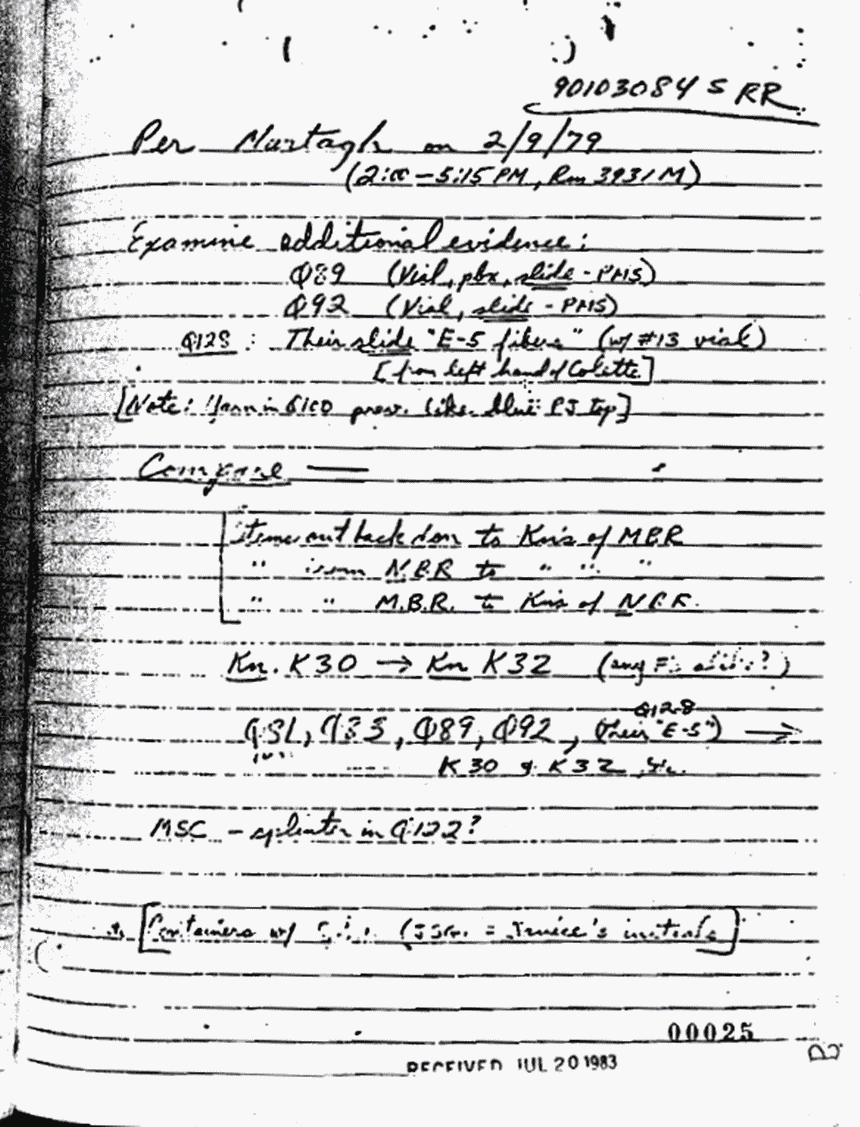 90103084 S RR
Per Murtagh on 2/9/79
(2:00 – 5:15 PM, Rm 3931 M)
Examine additional evidence:
Q89 (Vial, pbx, slide - PMS)
Q92 (Vial, slide - PMS)
Q128 : Their slide "E-5 fibers" (w/ #13 vial)
[from left hand of Colette]
[Note: Yarn in prev. like blue PJ top]
Compare —
items out back door to Kn's of MBR
" from N.B.R to " " "
" " M.B.R. to Kn's of N.B.R.
Kn. K30 → Kn K32 (any alike?)
Q128
Q89, Q92, (Their "E-5") →
K30 & K32
MSC - splinter in Q122?
[Containers w/ = Janice's initials]
00025
RECEIVED JUL 20 1983